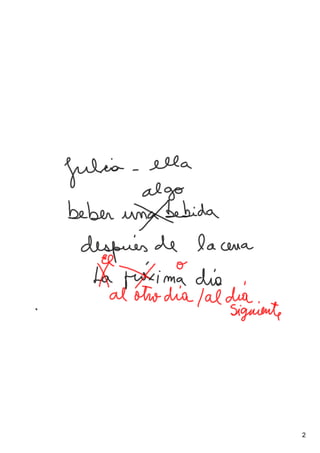 Julia - ella
algo
beber una bebida
después de la cena
el o
La próxima día
al otro día / al día
siguiente
2